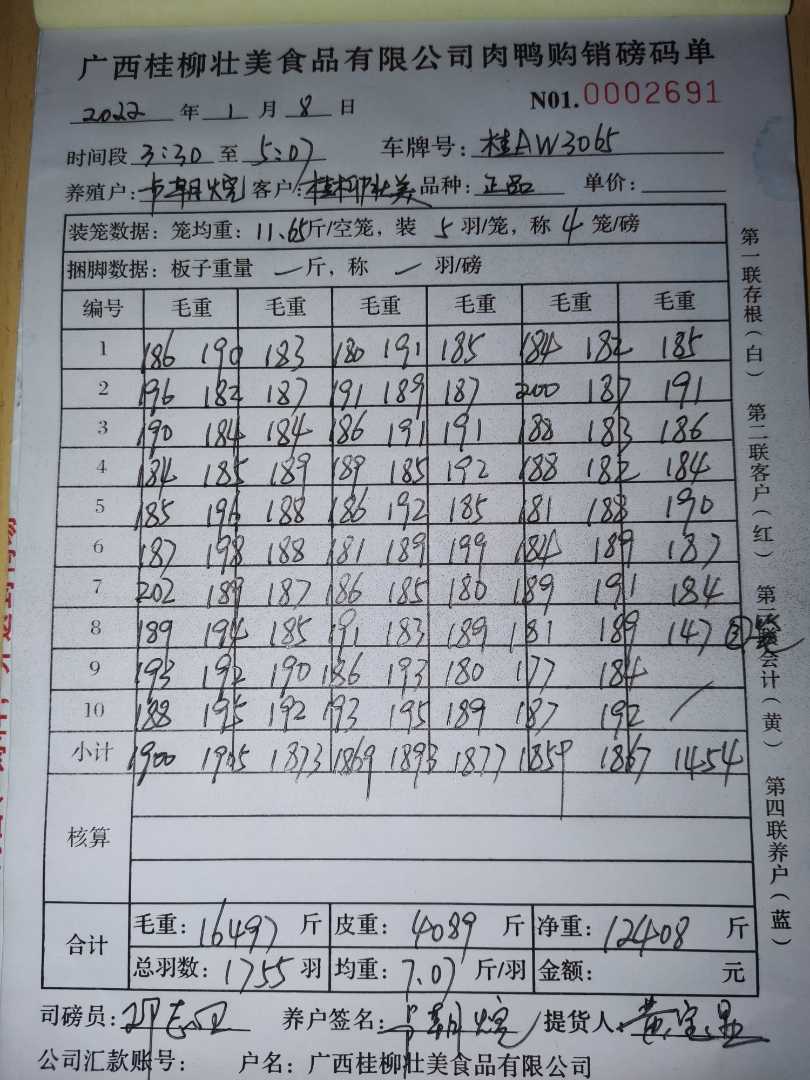 广西桂柳壮美食品有限公司肉鸭购销磅码单
2022 年 1 月 8 日 N01.0002691
时间段 3:30 至 5:07 车牌号: 桂AW3065
养殖户: 客户: 桂柳壮美 品种: 正品 单价:
装笼数据: 笼均重: 11.65斤/空笼, 装 5 羽/笼, 称 4 笼/磅
捆脚数据: 板子重量 — 斤, 称 — 羽/磅
编号 毛重 毛重 毛重 毛重 毛重 毛重
1 186 190 183 180 191 185 184 182 185
2 196 182 187 191 189 187 200 187 191
3 190 184 184 186 191 191 188 183 186
4 184 185 189 189 185 192 188 182 184
5 185 196 188 186 192 185 181 188 190
6 187 198 188 181 189 199 184 189 187
7 202 189 187 186 185 180 189 191 184
8 189 194 185 191 183 189 181 189 147
9 193 192 190 186 193 180 177 184
10 188 195 192 193 195 189 187 192 /
小计 1900 1905 1873 1869 1893 1877 1859 1867 1454
核算
合计
毛重: 16497 斤 皮重: 4089 斤 净重: 12408 斤
总羽数: 1755 羽 均重: 7.07 斤/羽 金额: 元
司磅员: 养户签名: 提货人:
公司汇款账号: 户名: 广西桂柳壮美食品有限公司
第一联存根(白) 第二联客户(红) 第三联会计(黄) 第四联养户(蓝)